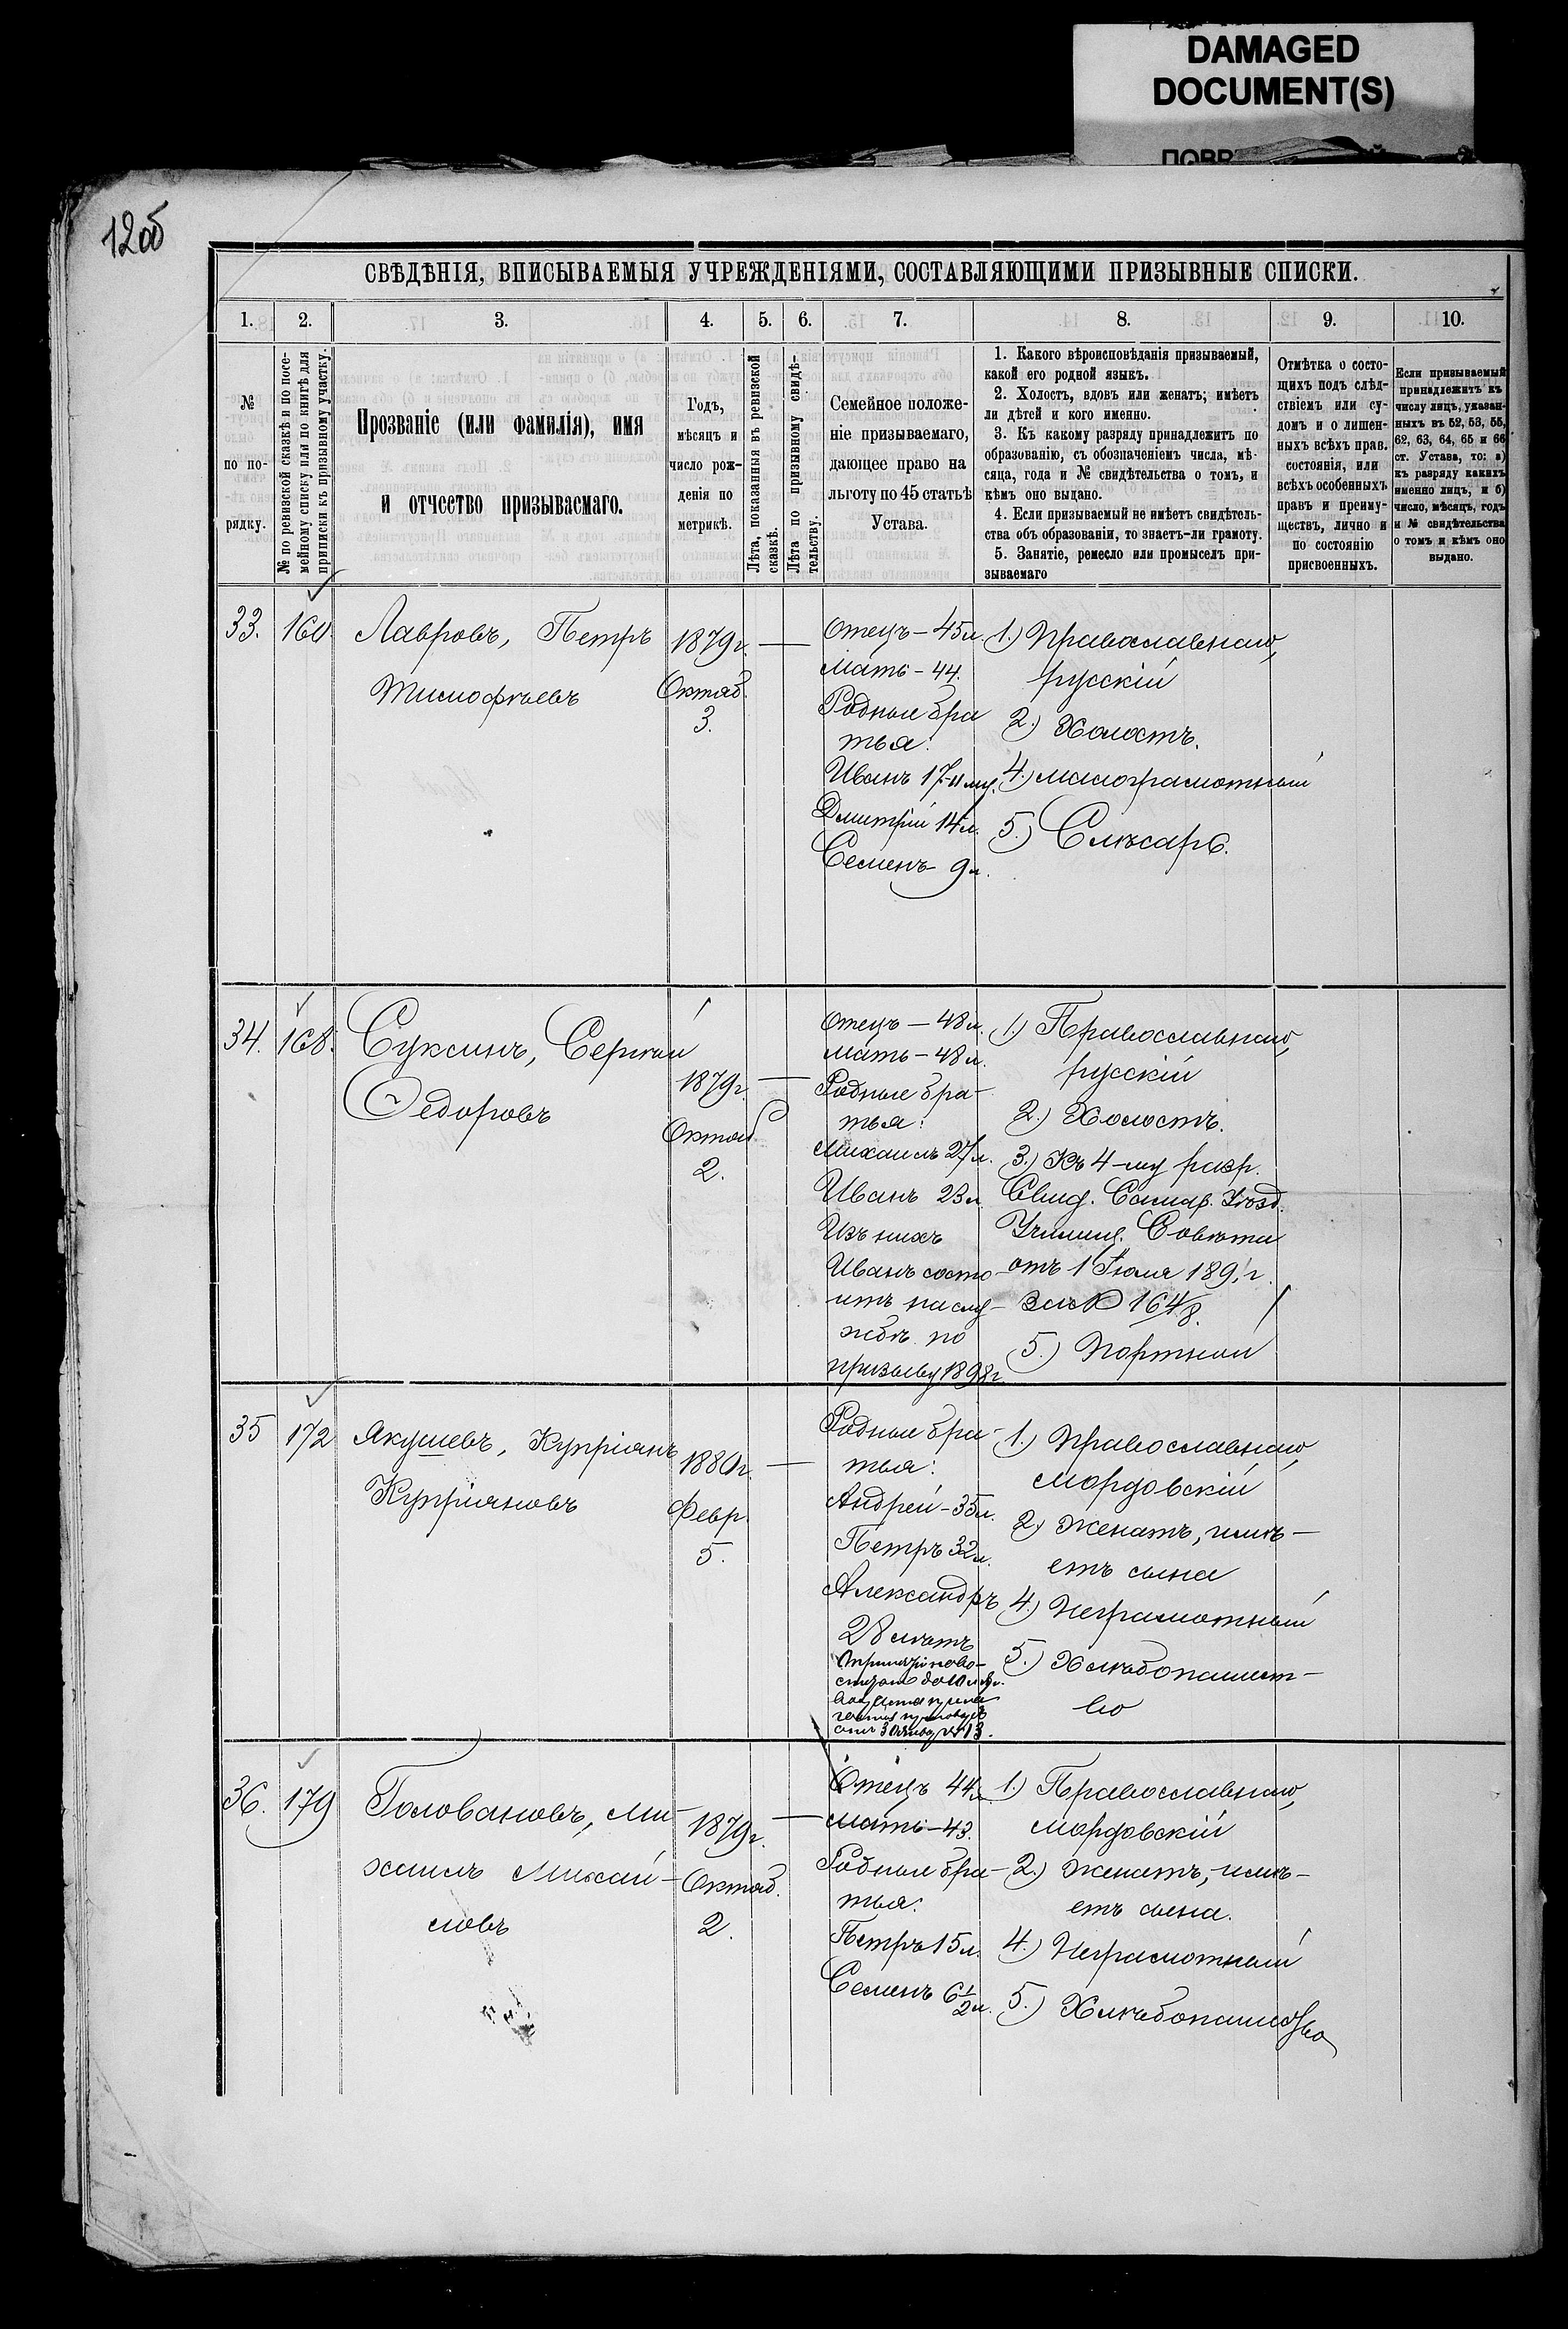 DAMAGED
DOCUMENT(S)
12 об
СВѢДѢНІЯ, ВПИСЫВАЕМЫЯ УЧРЕЖДЕНІЯМИ, СОСТАВЛЯЮЩИМИ ПРИЗЫВНЫЕ СПИСКИ.
1. 2. 3. 4. 5. 6. 7. 8. 9. 10.
№
по по-
рядку.
№ по ревизской сказкѣ и по посе-
мейному списку или по книгѣ для
приписки къ призывному участку.
Прозваніе (или фамилія), имя
и отчество призываемаго.
Годъ,
мѣсяцъ и
число рож-
денія по
метрикѣ.
Лѣта, показанныя въ ревизской
сказкѣ.
Лѣта по призывному свидѣ-
тельству.
Семейное положе-
ніе призываемаго,
дающее право на
льготу по 45 статьѣ
Устава.
1. Какого вѣроисповѣданія призываемый,
какой его родной языкъ.
2. Холостъ, вдовъ или женатъ; имѣетъ
ли дѣтей и кого именно.
3. Къ какому разряду принадлежитъ по
образованію, съ обозначеніемъ числа, мѣ-
сяца, года и № свидѣтельства о томъ, и
кѣмъ оно выдано.
4. Если призываемый не имѣетъ свидѣтель-
ства объ образованіи, то знаетъ-ли грамоту.
5. Занятіе, ремесло или промыселъ при-
зываемаго
Отмѣтка о состо-
щихъ подъ слѣд-
ствіемъ или су-
домъ и о лишен-
ныхъ всѣхъ прав.
состоянія, или
всѣхъ особенныхъ
правъ и преиму-
ществъ, лично и
по состоянію
присвоенныхъ.
Если призываемый
принадлежитъ къ
числу лицъ, указан-
ныхъ въ 52, 53, 55,
62, 63, 64, 65 и 66
ст. Устава, то: а)
къ разряду какихъ
именно лицъ, и б)
число, мѣсяцъ, годъ
и № свидѣтельства
о томъ и кѣмъ оно
выдано.
33. 160.
Лавровъ, Петръ
Тимофѣевъ
1879 г.
Октяб.
3.
Отецъ – 45 л.
Мать – 44.
Родные бра
тья:
Иванъ 17
Дмитрій 14 л.
Семенъ 9 л.
1.) Православнаго,
русскій
2.) Холостъ.
4.) малограмотный
5.) Слѣсарь.
34. 168.
Суксинъ, Сергѣй
Ѳедоровъ
1879 г.
Октяб.
2.
Отецъ – 48 л.
Мать – 48 л.
Родные бра-
тья:
Михаилъ 27 л.
Иванъ 23 л.
Изъ нихъ
Иванъ состо-
итъ на слу-
жбѣ по
призыву 1898 г.
1.) Православнаго,
русскій
2.) Холостъ.
3.) Къ 4-му разр.
Свид. Самар. Уѣзд.
Училищ. Совѣта
отъ 1 Іюля 189 г.
за № 164/8.
5.) Портной
35 172
Якушевъ, Купріянъ
Купріяновъ
1880 г.
Февр.
5.
Родные бра-
тья:
Андрей – 35 л.
Петръ 32 л.
Александръ
28 лѣтъ
1.) Православнаго,
мордовскій
2.) Женатъ, имѣ-
етъ сына
4.) Неграмотный
5.) Хлѣбопашест-
во
36. 179
Головановъ, Ми-
хаилъ Михай-
ловъ
1879 г.
Октяб.
2.
Отецъ 44 л.
Мать – 43.
Родные бра-
тья:
Петръ 15 л.
Семенъ 6 1/2 л.
1.) Православнаго,
мордовскій
2.) Женатъ, имѣ-
етъ сына.
4.) Неграмотный
5.) Хлѣбопашество